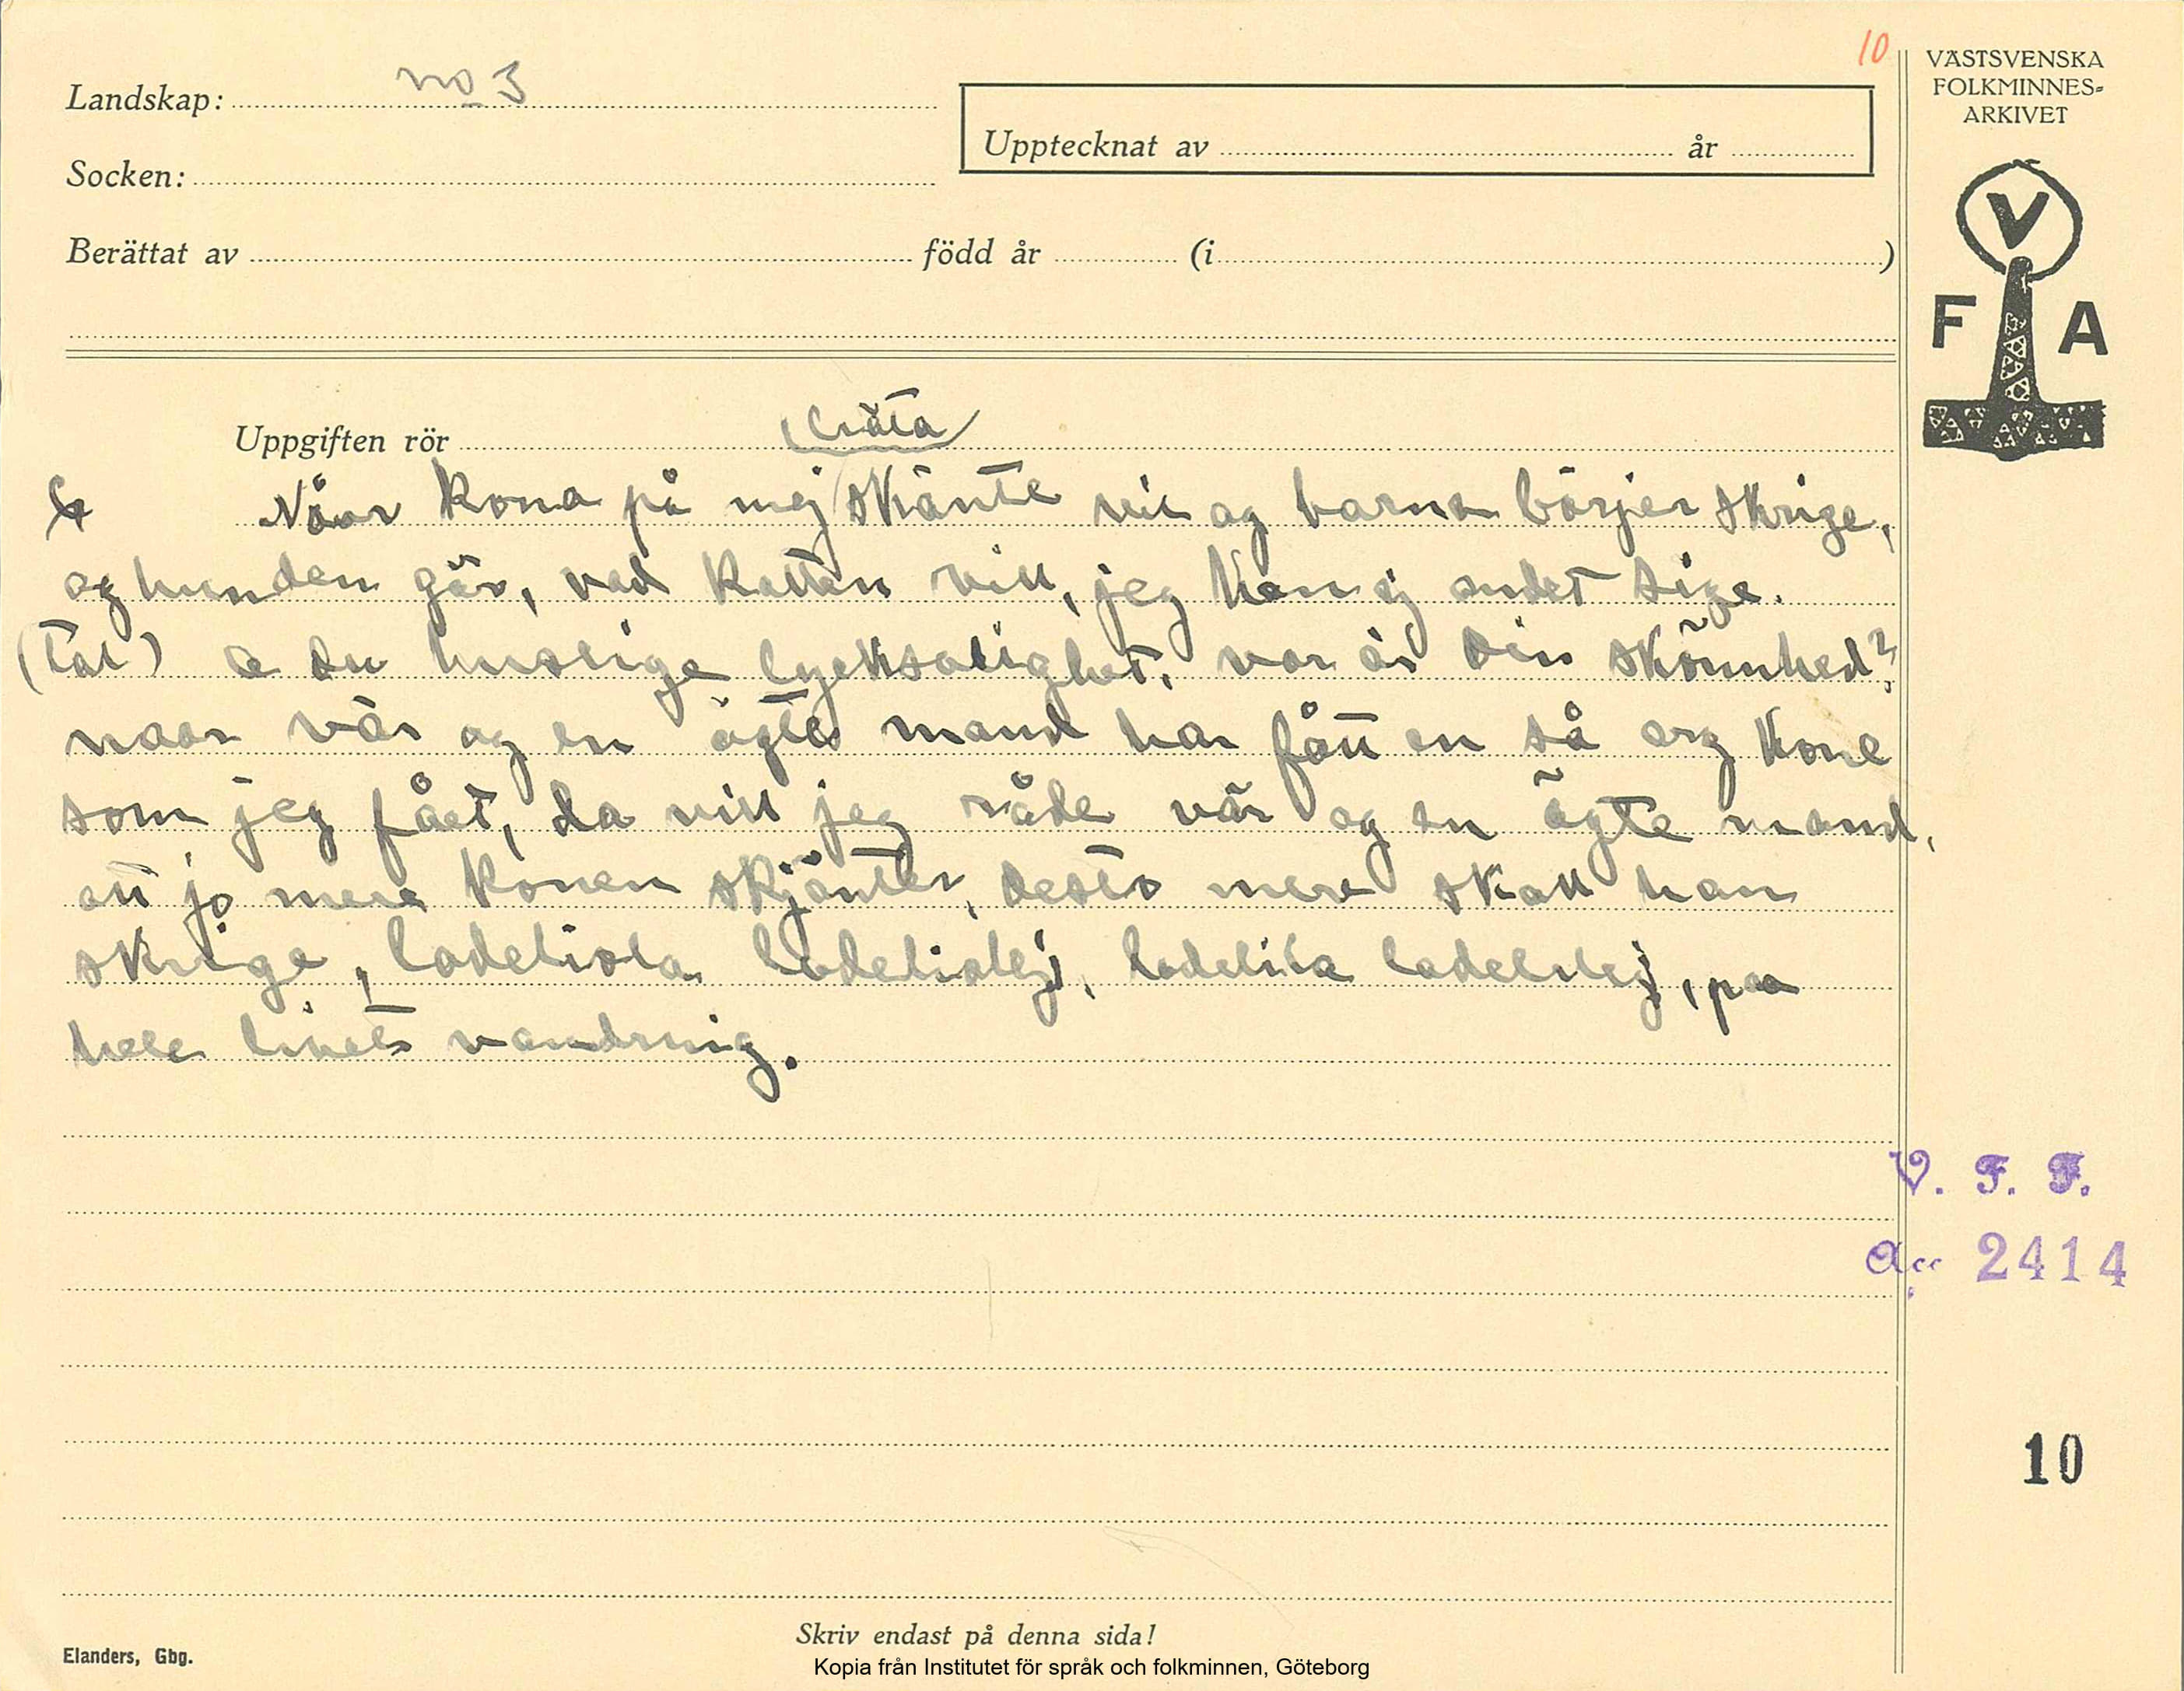 10
VÄSTSVENSKA
FOLKMINNES-
ARKIVET
Landskap: no 3
Upptecknat av år
Socken:
Berättat av född år (i )
V
F A
Uppgiften rör
Nåar kona på mej skänte vil og barna börjer skrige,
og hunden gör, ved katten vill, jeg kan ej andet sige.
(Tal) O du huslige lycksalighet, var är Din skönnhed?
naar vär og en ägte mand har fått en så arg kone
som jeg fået, da vill jeg råde vär og en ägte mand,
att jo mere konen skjänter, desto mere skall han
skrige, ladeliola ladeliolej, ladelila ladelilej, paa
hele livets vandrnig.
V. F. F.
Acc 2414
10
Skriv endast på denna sida!
Elanders, Gbg.
Kopia från Institutet för språk och folkminnen, Göteborg